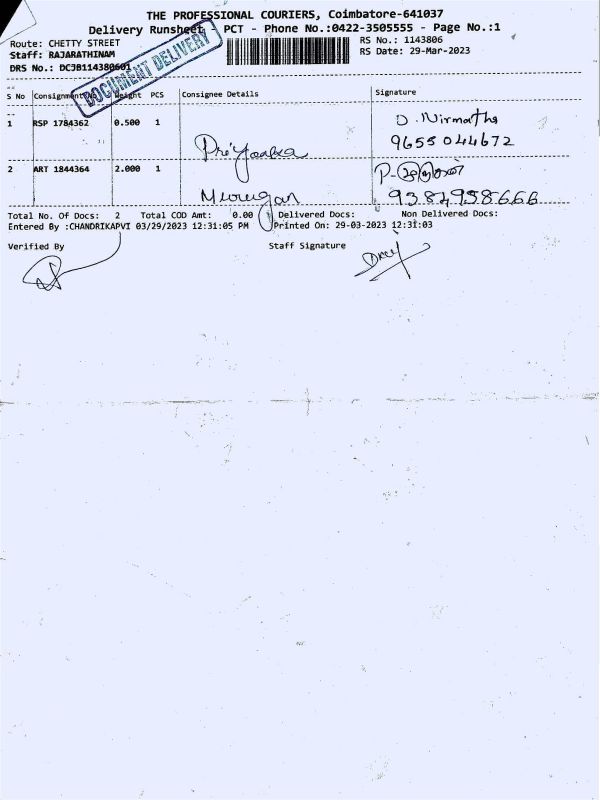 THE PROFESSIONAL COURIERS, Coimbatore-641037
Delivery Runsheet PCT - Phone No.:0422-3505555 - Page No.:1
Route: CHETTY STREET
RS No.: 1143806
Staff: RAJARATHINAM
RS Date: 29-Mar-2023
DRS No.: DCJB114380601
DOCUMENT DELIVERY
S No Consignment No Weight PCS Consignee Details Signature
1 RSP 1784362 0.500 1 D. Nirmatha
9655044672
2 ART 1844364 2.000 1
Murugan 9384958666
Total No. Of Docs: 2 Total COD Amt: 0.00 Delivered Docs: Non Delivered Docs:
Entered By :CHANDRIKAPVI 03/29/2023 12:31:05 PM Printed On: 29-03-2023 12:31:03
Verified By Staff Signature